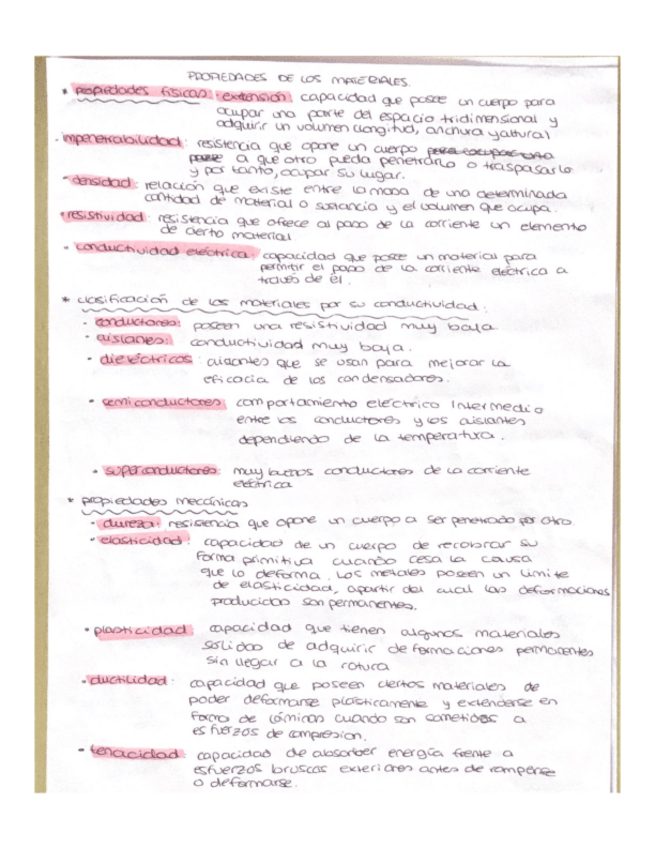 PROPIEDADES DE LOS MATERIALES.
* propiedades físicas: extensión: capacidad que posee un cuerpo para
ocupar una parte del espacio tridimensional y
adquirir un volumen (longitud, anchura y altura)
- impenetrabilidad: resistencia que opone un cuerpo para ocupar una
a que otro pueda penetrarlo o traspasarlo
y por tanto, ocupar su lugar.
- densidad: relación que existe entre la masa de una determinada
cantidad de material o sustancia y el volumen que ocupa.
- resistividad: resistencia que ofrece al paso de la corriente un elemento
de cierto material.
- conductividad eléctrica: capacidad que posee un material para
permitir el paso de la corriente eléctrica a
través de él.
* clasificación de los materiales por su conductividad:
- conductores: poseen una resistividad muy baja
- aislantes: conductividad muy baja.
- dieléctricos: aislantes que se usan para mejorar la
eficacia de los condensadores.
- semiconductores: comportamiento eléctrico intermedio
entre los conductores y los aislantes
dependiendo de la temperatura.
- superconductores: muy buenos conductores de la corriente
eléctrica
* propiedades mecánicas
- dureza: resistencia que opone un cuerpo a ser penetrado por otro.
- elasticidad: capacidad de un cuerpo de recobrar su
forma primitiva cuando cesa la causa
que lo deforma. Los metales poseen un límite
de elasticidad, a partir del cual las deformaciones
producidas son permanentes.
- plasticidad: capacidad que tienen algunos materiales
sólidos de adquirir deformaciones permanentes
sin llegar a la rotura
- ductilidad: capacidad que poseen ciertos materiales de
poder deformarse plásticamente y extenderse en
forma de láminas cuando son sometidos a
esfuerzos de compresión.
- tenacidad: capacidad de absorber energía frente a
esfuerzos bruscos exteriores antes de romperse
o deformarse.